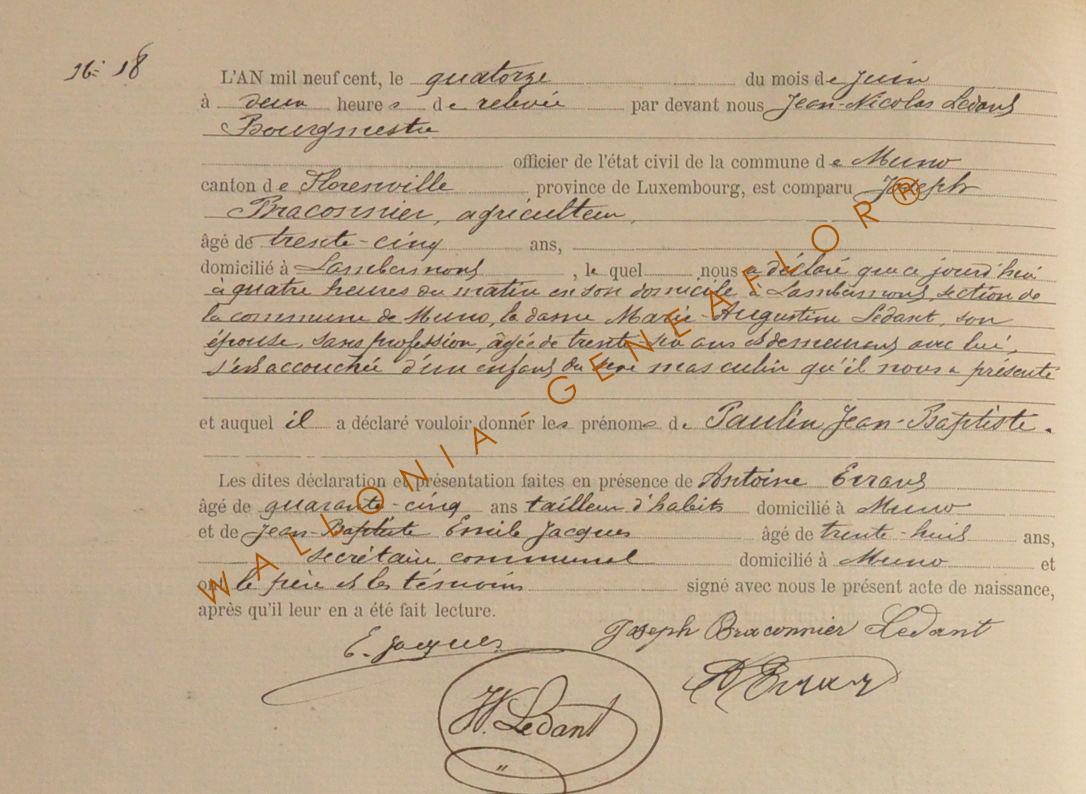 N° 18
L'AN mil neuf cent, le quatorze du mois de Juin
à deux heures de relevée par devant nous Jean-Nicolas Ledant
Bourgmestre
officier de l'état civil de la commune de Muno
canton de Florenville province de Luxembourg, est comparu Joseph
Braconnier, agriculteur,
âgé de trente-cinq ans,
domicilié à Lambermont, le quel nous a déclaré que ce jourd'hui
à quatre heures du matin en son domicile à Lambermont, section de
la commune de Muno, la dame Marie-Augustine Ledant, son
épouse, sans profession, âgée de trente-six ans et demeurant avec lui,
s'est accouchée d'un enfant du sexe masculin qu'il nous a présenté
et auquel il a déclaré vouloir donner les prénoms de Paulin Jean-Baptiste.
Les dites déclaration et présentation faites en présence de Antoine Errard
âgé de quarante-cinq ans tailleur d'habits domicilié à Muno
et de Jean-Baptiste Emile Jacques âgé de trente-huit ans,
secrétaire communal domicilié à Muno et
ont le père et les témoins signé avec nous le présent acte de naissance,
après qu'il leur en a été fait lecture.
E. Jacques Joseph Braconnier Ledant
JN. Ledant
WALLONIA - GENEAFLOR®